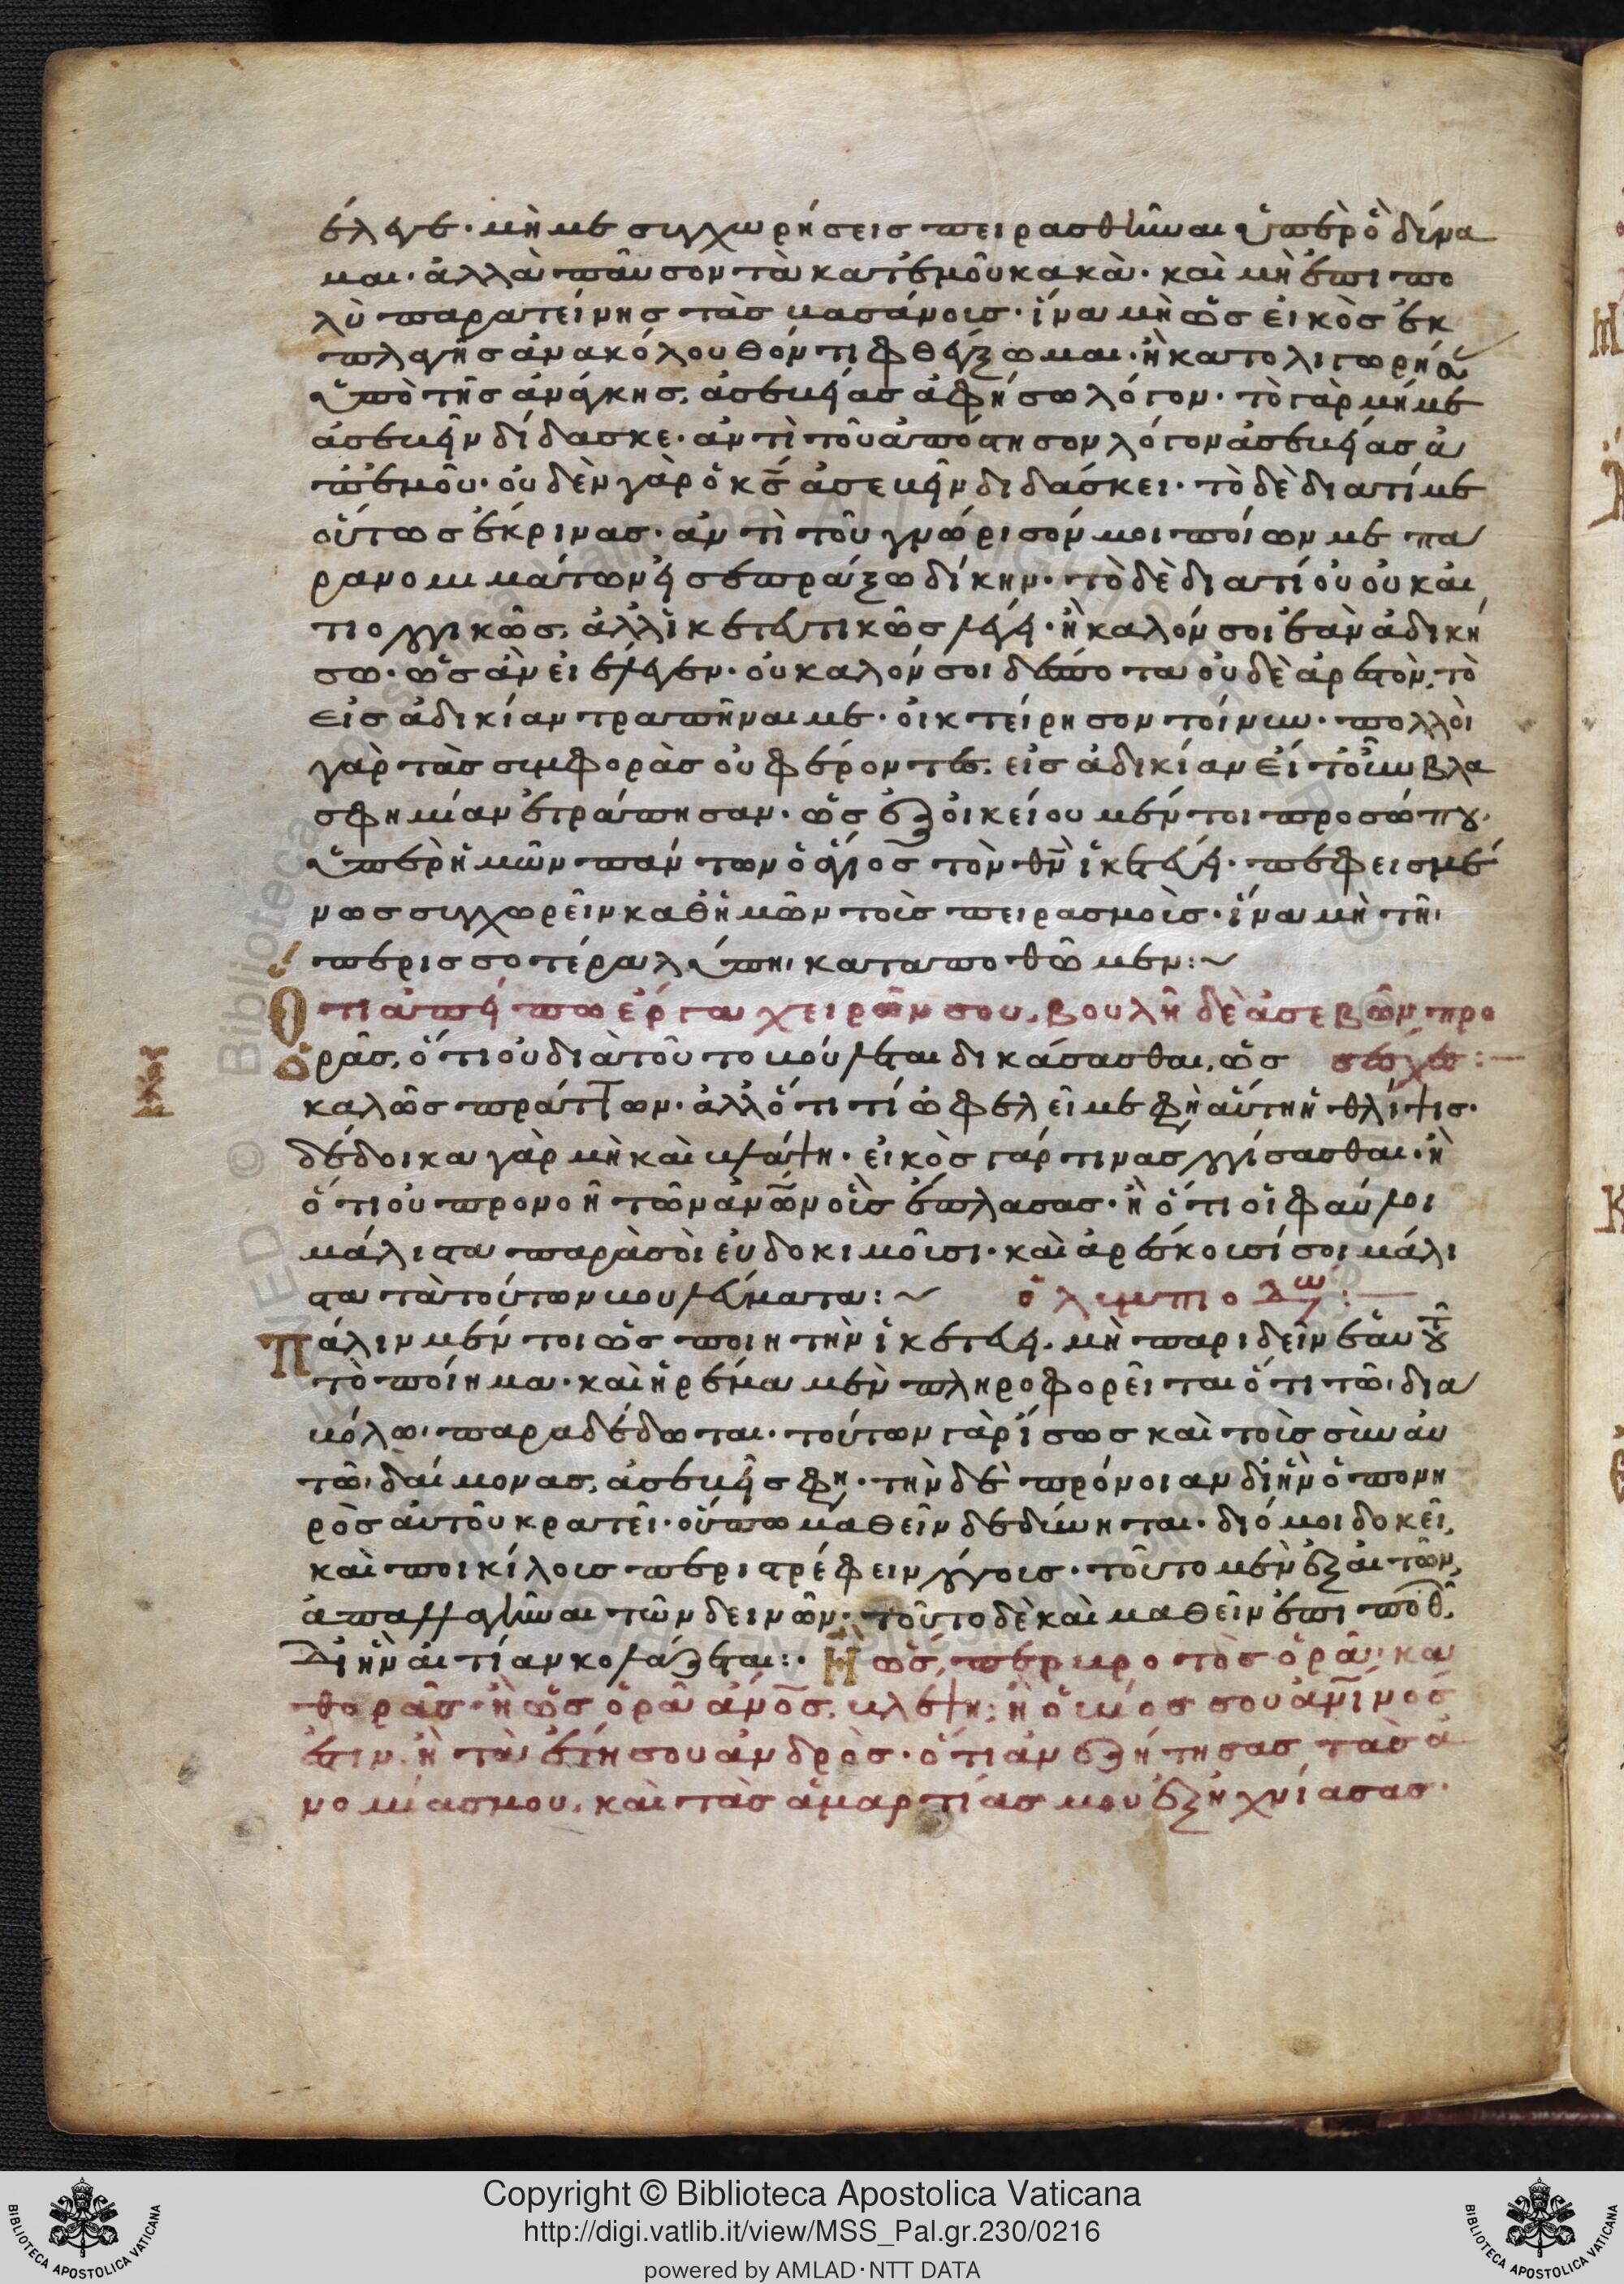 ἐλέγξ· μή με συγχωρήσεις πειρασθῆναι ὑπὲρ ὃ δύνα
μαι· ἀλλὰ παῦσον τὰ κατ' ἐμοῦ κακὰ· καὶ μὴ ἐπι πο
λὺ παρατείνης τὰς βασάνοις· ἵνα μὴ ὡς εἰκὸς ἐκ
πλαγῆς ἀνακόλουθόν τι φθέγξωμαι· ἢ
ὑπὸ τῆς ἀνάγκης, ἀσεβείας ἀφήσω λόγον· τὸ γὰρ μή με
ἀσεβεῖν δίδασκε· ἀντὶ τοῦ ἀπόστησον λόγον ἀσεβείας ἀ
π' ἐμοῦ· οὐδὲν γὰρ ὁ κς ἀσεβεῖν διδάσκει· τὸ δὲ διατί με
οὕτως ἔκρινας· ἀντὶ τοῦ γνώρισόν μοι ποίων με πα
ρανομημάτων εἰσεπράξω δίκην· τὸ δὲ διατί οὐ οὐκ αἰ
τιολογικῶς, ἀλλ' ἱκετευτικῶς λέγει· ἢ καλόν σοι ἐὰν ἀδική
σω· ὡς ἂν εἰ ἔλεγεν· οὐ καλόν σοι δέσποτα οὐδὲ ἀρεστὸν, τὸ
εἰς ἀδικίαν τραπῆναι με· οἰκτείρησον τοίνυν· πολλοὶ
γὰρ τὰς συμφορὰς οὐ φέροντες, εἰς ἀδικίαν εἴτ' οὖν βλα
σφημίαν ἐτράπησαν· ὡς ἐξ οἰκείου μέν τοι προσώπου·
ὑπὲρ ἡμῶν πάντων ὁ ἅγιος τὸν θν ἱκετεύει· πεφεισμέ
νως συγχωρεῖν καθ' ἡμῶν τοῖς πειρασμοῖς· ἵνα μὴ τῆι
περισσοτέρα λύπηι καταποθῶμεν:~
Ὅτι ἀπείπω ἔργα χειρῶν σου, βουλῆ δὲ ἀσεβῶν προ
σέσχες:—
Ὁρᾶς, ὅτι οὐ διὰ τοῦτο βούλεται δικάσασθαι, ὡς
καλῶς πράττων· ἀλλ' ὅτι τί ὠφελεῖ με φησὶ αὕτη ἡ θλίψις·
δέδοικα γὰρ μὴ καὶ βλάψη· εἰκὸς γάρ τινας λογίσασθαι· ἢ
ὅτι οὐ προνοῆ τῶν ἀνων οἷς ἔπλασας· ἢ ὅτι οἱ φαῦλοι
μάλιστα παρὰ σοὶ εὐδοκιμοῦσι· καὶ ἀρέσκουσί σοι μάλι
στα τὰ τούτων βουλεύματα:~ ὀλυμπιοδω:—
Πάλιν μέν τοι ὡς ποιητὴν ἱκετεύει, μὴ παριδεῖν ἑαυτοῦ
τὸ ποίημα· καὶ ἠρέμα μὲν πληροφορεῖται ὅτι τῶι δια
βόλωι παραδέδωται· τούτων γὰρ ἴσως καὶ τοῖς σὺν αὐ
τῶι δαίμονας, ἀσεβεῖς φησι· τὴν δὲ πρόνοιαν δι' ἣν ὁ πονη
ρὸς αὐτοῦ κρατεῖ· οὔπω μαθεῖν δεδύνηται· διό μοι δοκεῖ,
καὶ ποικίλοις περιστρέφειν λόγοις· τοῦτο μὲν ἐξαιτῶν,
ἀπαλλαγῆναι τῶν δεινῶν· τοῦτο δὲ καὶ μαθεῖν ἐπιποθεῖ
δι' ἣν αἰτίαν κολάζεται:· Ἢ ὡς, περ βροτὸς ὁρᾶ, κα
θορᾶς· ἢ ὡς ὁρᾶ ἀνος, βλέψη; ἢ ὁ βίος σου ἀνινός
ἐστιν· ἢ τὰ ἔτη σου ἀνδρὸς· ὅτι ἀνεζήτησας τὰς ἀ
νομίας μου, καὶ τὰς ἁμαρτίας μου ἐξηχνίασας·
Copyright © Biblioteca Apostolica Vaticana
http://digi.vatlib.it/view/MSS_Pal.gr.230/0216
powered by AMLAD·NTT DATA
BIBLIOTECA APOSTOLICA VATICANA
BIBLIOTECA APOSTOLICA VATICANA